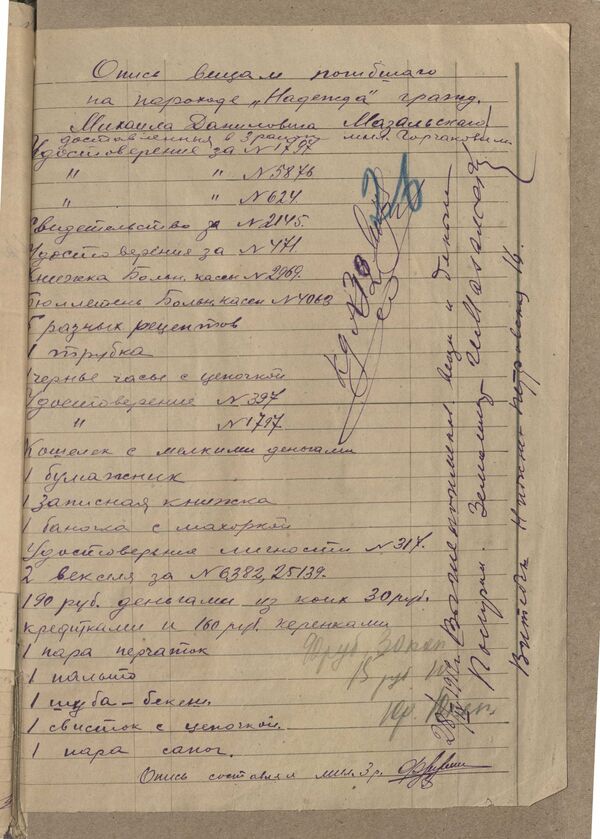 Опись вещам погибшаго
на пароходе „Надежда" гражд.
Михаила Даниловича Мазальскаго
доставленныя в 3 район мил. Горчаковым
Удостоверение за № 1797
" " № 5876
" " № 624
Свидетельство за № 2145.
Удостоверения за № 471
Книжка Больн. кассы № 2969.
Бюллетень Больн. кассы № 4063
5 разных рецептов
1 трубка
1 черные часы с цепочкой
Удостоверение № 397
" № 1797
Кошелек с мелкими деньгами
1 бумажник
1 записная книжка
1 баночка с махоркой
Удостоверения личности № 317.
2 векселя за № 6382, 25139.
190 руб. деньгами из коих 30 руб.
кредитками и 160 руб. керенками
1 пара перчаток
1 пальто
1 шуба - бекеш.
1 свисток с цепочкой.
1 пара сапог.
Опись составлял мил. 3 р.
90 руб. 30 коп
15 руб.
вещи и деньги
Получил.